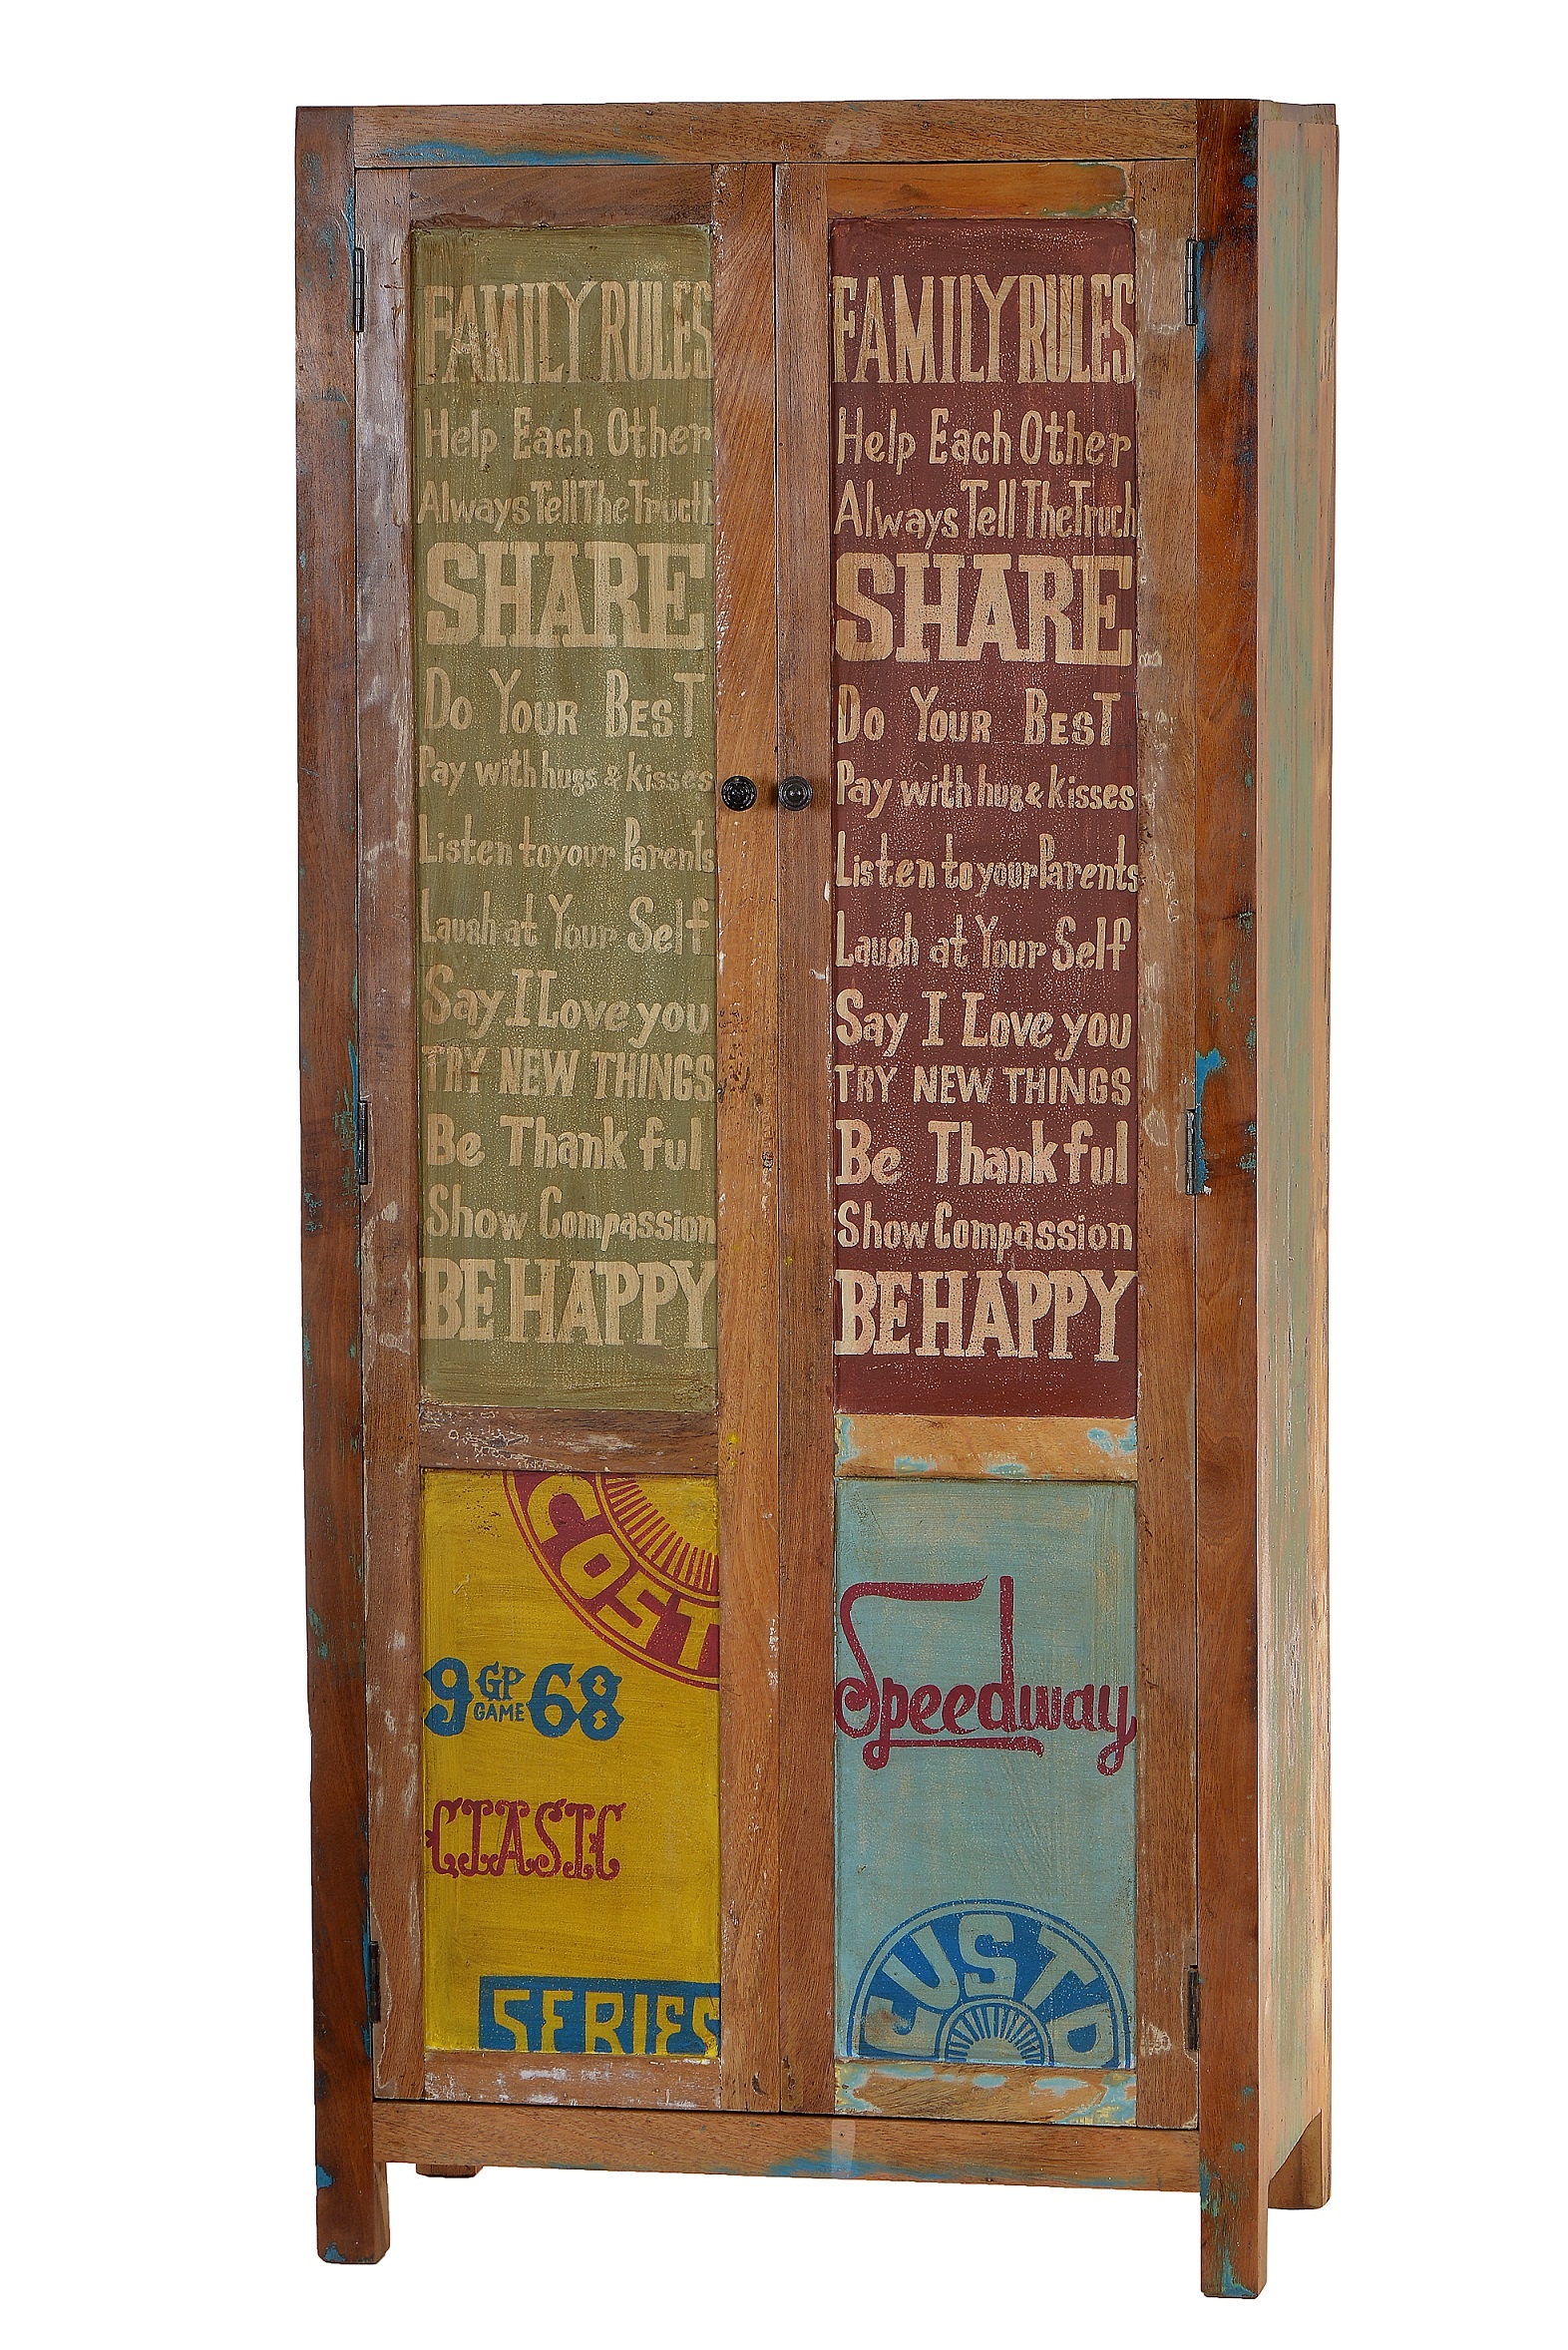 FAMILY RULES
Help Each Other
Always Tell The Tructh
SHARE
Do YOUR BEST
Pay with hugs & kisses
Listen to your Parents
Laugh at Your Self
Say I Love you
TRY NEW THINGS
Be Thankful
Show Compassion
BE HAPPY
COST
9 GP GAME 68
CLASIC
SERIES
FAMILY RULES
Help Each Other
Always Tell The Truch
SHARE
Do YOUR BEST
Pay with hug & kisses
Listen to your Parents
Laugh at Your Self
Say I Love you
TRY NEW THINGS
Be Thankful
Show Compassion
BE HAPPY
Speedway
CUSTO